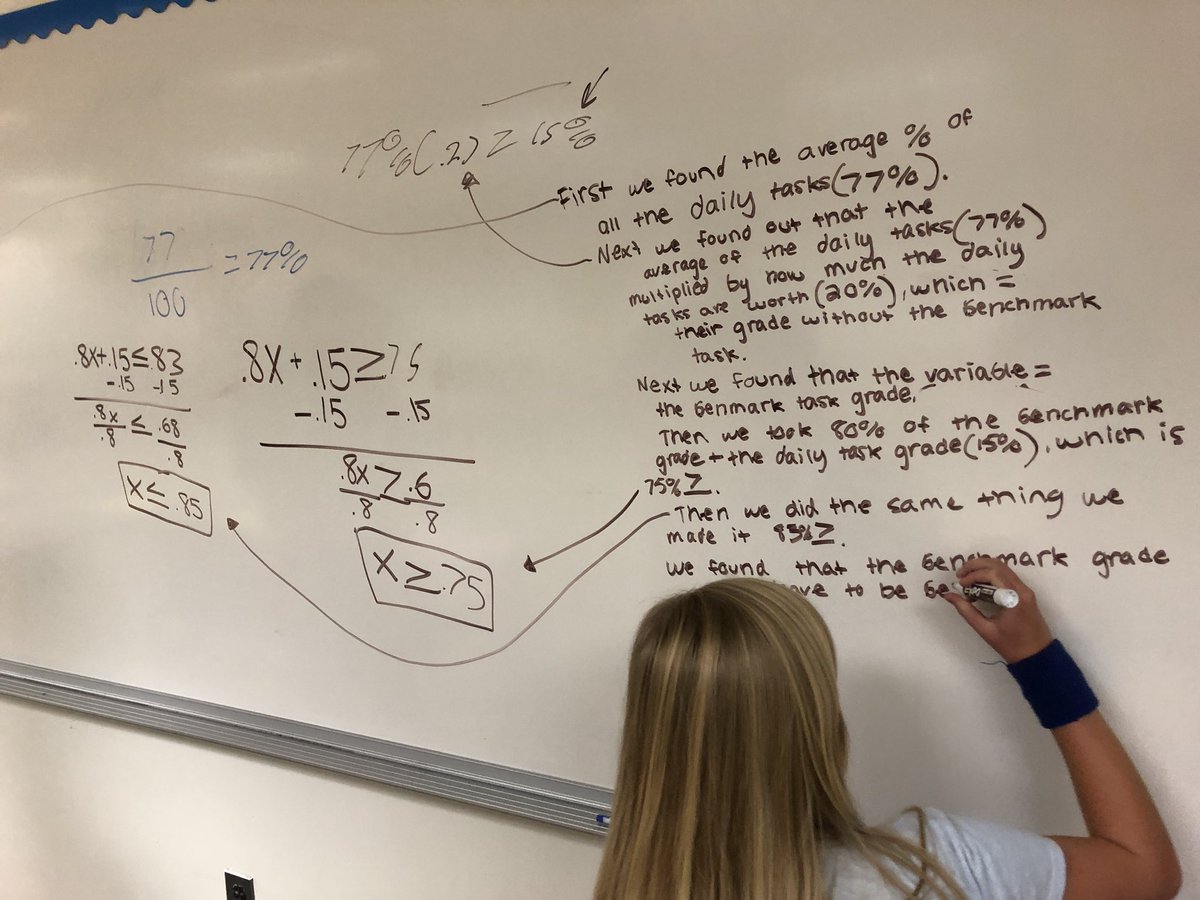 77%(.2) = 15%
77
100
= 77%
.8x+.15≤.83
-.15 -.15
.8x ≤ .68
.8 .8
x≤.85
.8x+.15≥.75
-.15 -.15
.8x ≥ .6
.8 .8
x≥.75
First we found the average % of
all the daily tasks(77%).
Next we found out that the
average of the daily tasks(77%)
multiplied by how much the daily
tasks are worth(20%), which =
their grade without the benchmark
task.
Next we found that the variable =
the benmark task grade.
Then we took 80% of the benchmark
grade + the daily task grade(15%), which is
75%≥.
Then we did the same thing we
made it 83%≥.
we found that the benchmark grade
to be be